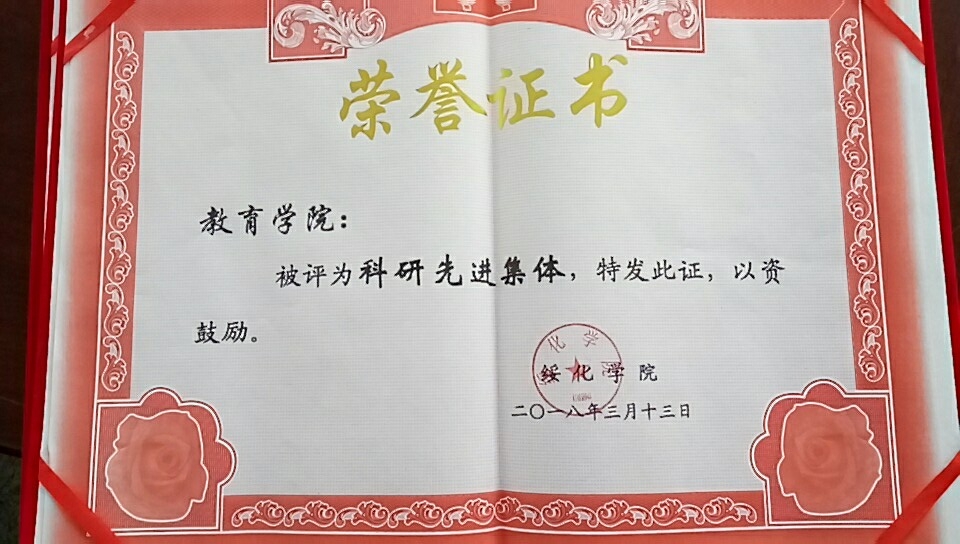 荣誉证书
教育学院：
被评为科研先进集体，特发此证，以资
鼓励。
绥化学院
二〇一八年三月十三日